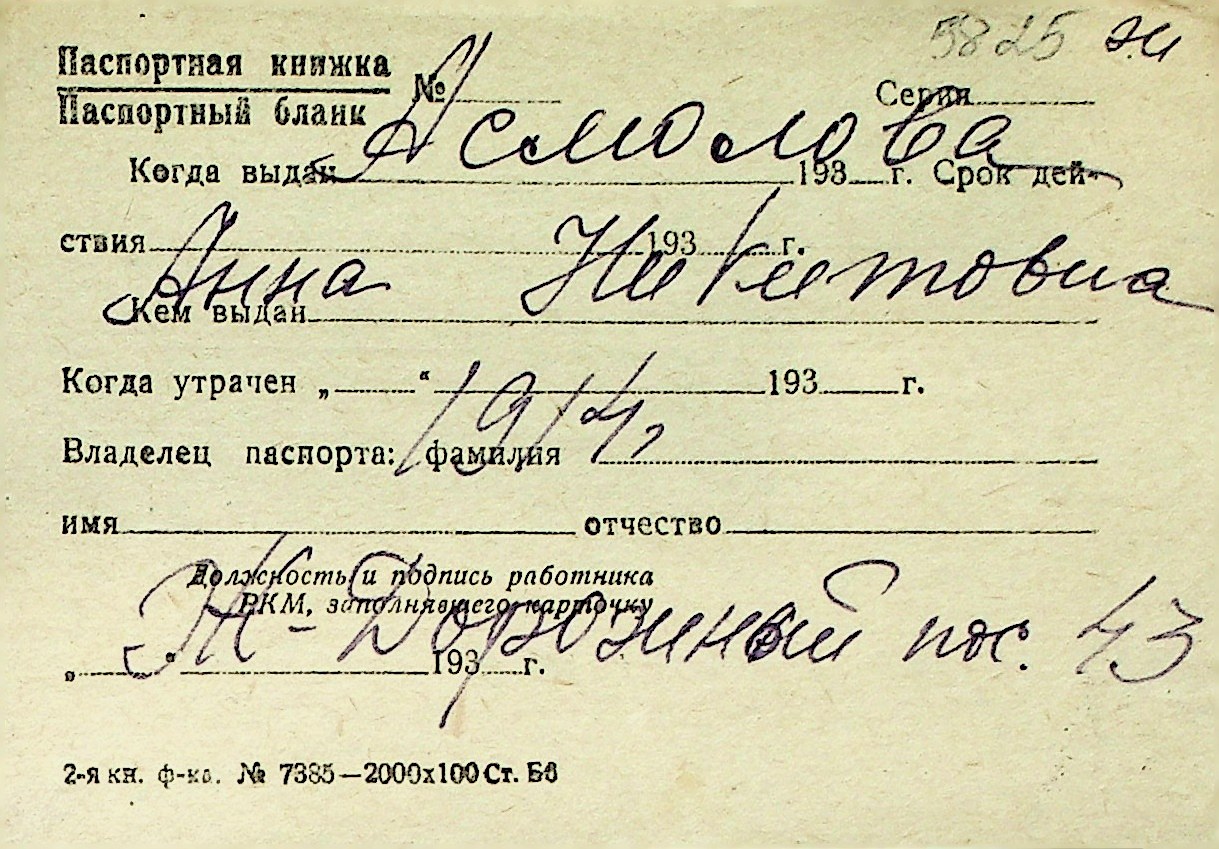 5825 ж
Паспортная книжка
Паспортный бланк
№ Серия
Асмолова
Когда выдан 193 г. Срок дей-
ствия 193 г.
Анна Никитовна
Кем выдан
Когда утрачен „ “ 193 г.
1914 г
Владелец паспорта: фамилия
имя отчество
Должность и подпись работника
РКМ, заполнявшего карточку
Ж-Дорожный пос. 43
„ “ 193 г.
2-я кн. ф-ка. № 7385—2000х100 Ст. Бб